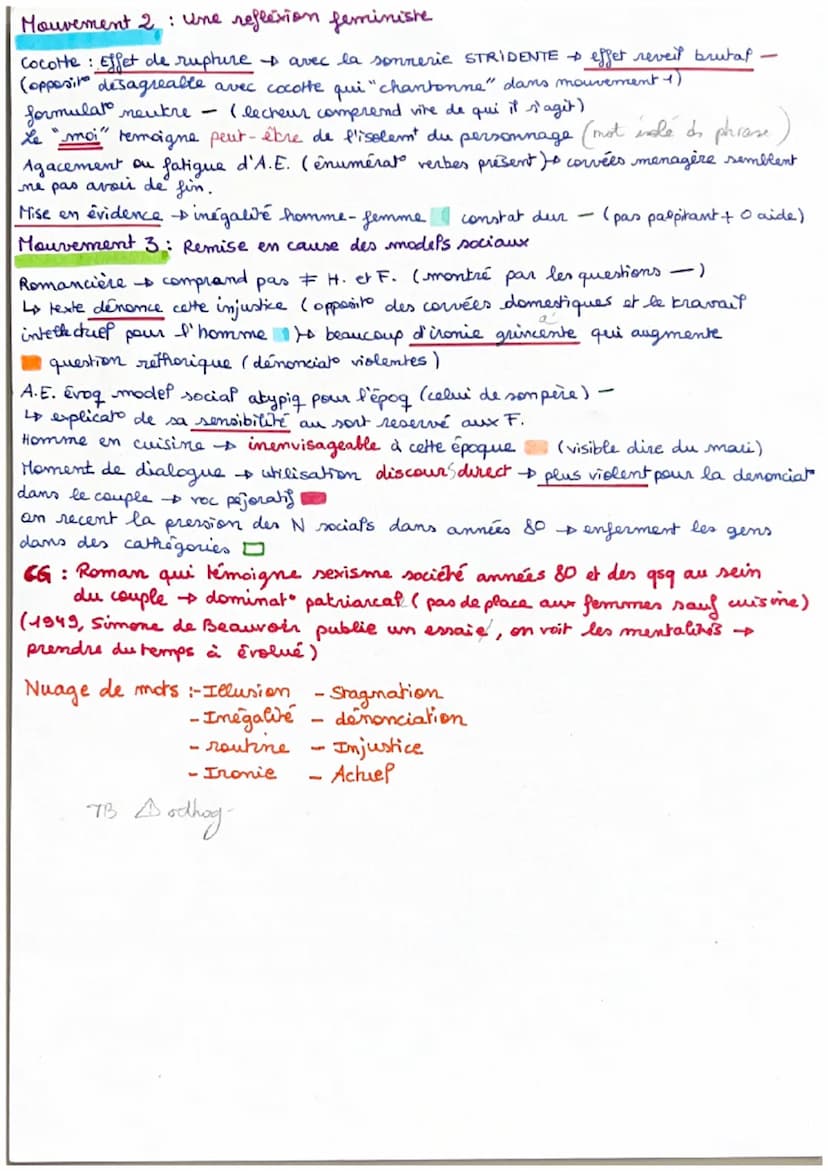 Mouvement 2 : Une reflexion feministe
Cocotte : Effet de rupture → avec la sonnerie STRIDENTE → effet reveil brutal —
(opposit° désagreable avec cocotte qui "chantonne" dans mouvement 1)
formulat° neutre — (lecteur comprend vite de qui il s'agit)
Le "moi" temoigne peut-être de l'isolemt du personnage (mot isolé ds phrase)
Agacement ou fatigue d'A.E. (énumérat° verbes présent) → corvées menagère semblent
ne pas avoir de fin.
Mise en évidence → inégalité homme-femme constat dur — (pas palpitant + 0 aide)
Mouvement 3 : Remise en cause des models sociaux
Romancière → comprend pas ≠ H. et F. (montré par les questions —)
↳ texte dénonce cette injustice (opposit° des corvées domestiques et le travail
intellectuel pour l'homme ) → beaucoup d'ironie grincente qui augmente
à
question rethorique (dénonciat° violentes)
A.E. évoq model social atypiq pour l'époq (celui de son père) —
↳ explicat° de sa sensibilité au sort reservé aux F.
Homme en cuisine → inenvisageable à cette époque (visible dire du mari)
Moment de dialogue → utilisation discours direct → plus violent pour la denonciat°
dans le couple → voc péjoratif
on recent la pression des N socials dans années 80 → enferment les gens
dans des cathégories
CG : Roman qui témoigne sexisme société années 80 et des qsq au sein
du couple → dominat° patriarcal (pas de place aux femmes sauf cuisine)
(1949, Simone de Beauvoir publie un essaie, on voit les mentalités →
prendre du temps à évolué)
Nuage de mots : - Illusion - Stagnation
- Inégalité - dénonciation
- routine - Injustice
- Ironie - Actuel
TB ⚠ orthog-